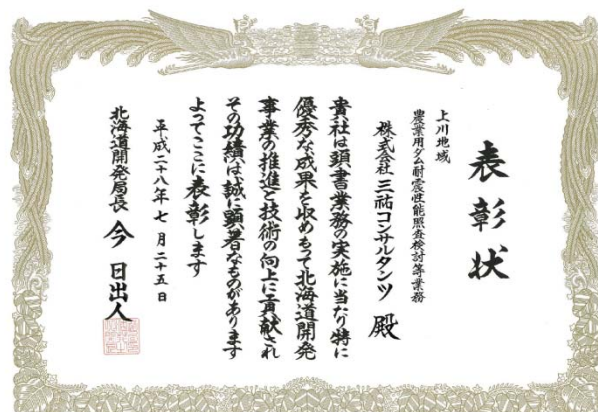 表彰状
上川地域
農業用ダム耐震性能照査検討等業務
株式会社 三祐コンサルタンツ 殿
貴社は頭書業務の実施に当たり特に
優秀な成果を収めもって北海道開発
事業の推進と技術の向上に貢献され
その功績は誠に顕著なものがあります
よってここに表彰します
平成二十八年七月二十五日
北海道開発局長 今 日出人